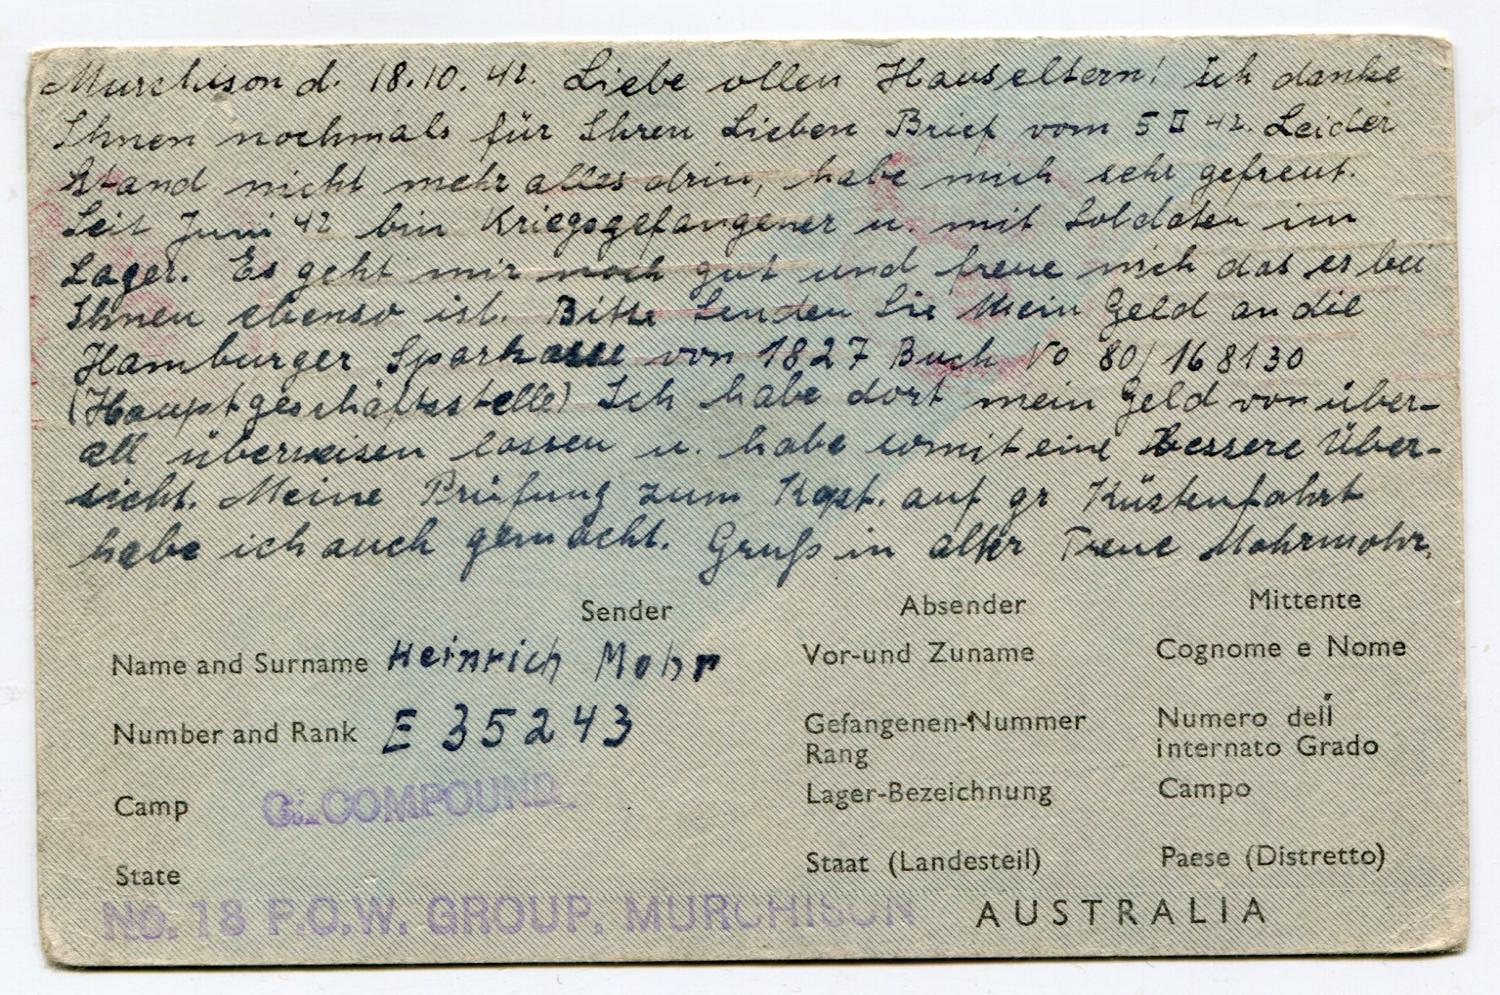 Murchison d. 18.10.42. Liebe ollen Hauseltern! Ich danke
Ihnen nochmals für Ihren Lieben Brief vom 5 II 42. Leider
Stand nicht mehr alles drin, habe mich sehr gefreut.
Seit Juni 42 bin Kriegsgefangener u. mit Soldaten im
Lager. Es geht mir noch gut und freue mich das es bei
Ihnen ebenso ist. Bitte Senden Sie Mein Geld an die
Hamburger Sparkasse von 1827 Buch No 80/168130
(Hauptgeschäftsstelle) Ich habe dort mein Geld von über-
all überweisen lassen u. habe somit eine bessere Über-
sicht. Meine Prüfung zum Kapt. auf gr Küstenfahrt
habe ich auch gemacht. Gruß in alter Treue Mohrmohr.
Sender Absender Mittente
Name and Surname Heinrich Mohr Vor-und Zuname Cognome e Nome
Number and Rank E 35243 Gefangenen-Nummer Numero dell
Rang internato Grado
Camp G. COMPOUND. Lager-Bezeichnung Campo
State Staat (Landesteil) Paese (Distretto)
No. 13 P.O.W. GROUP, MURCHISON AUSTRALIA